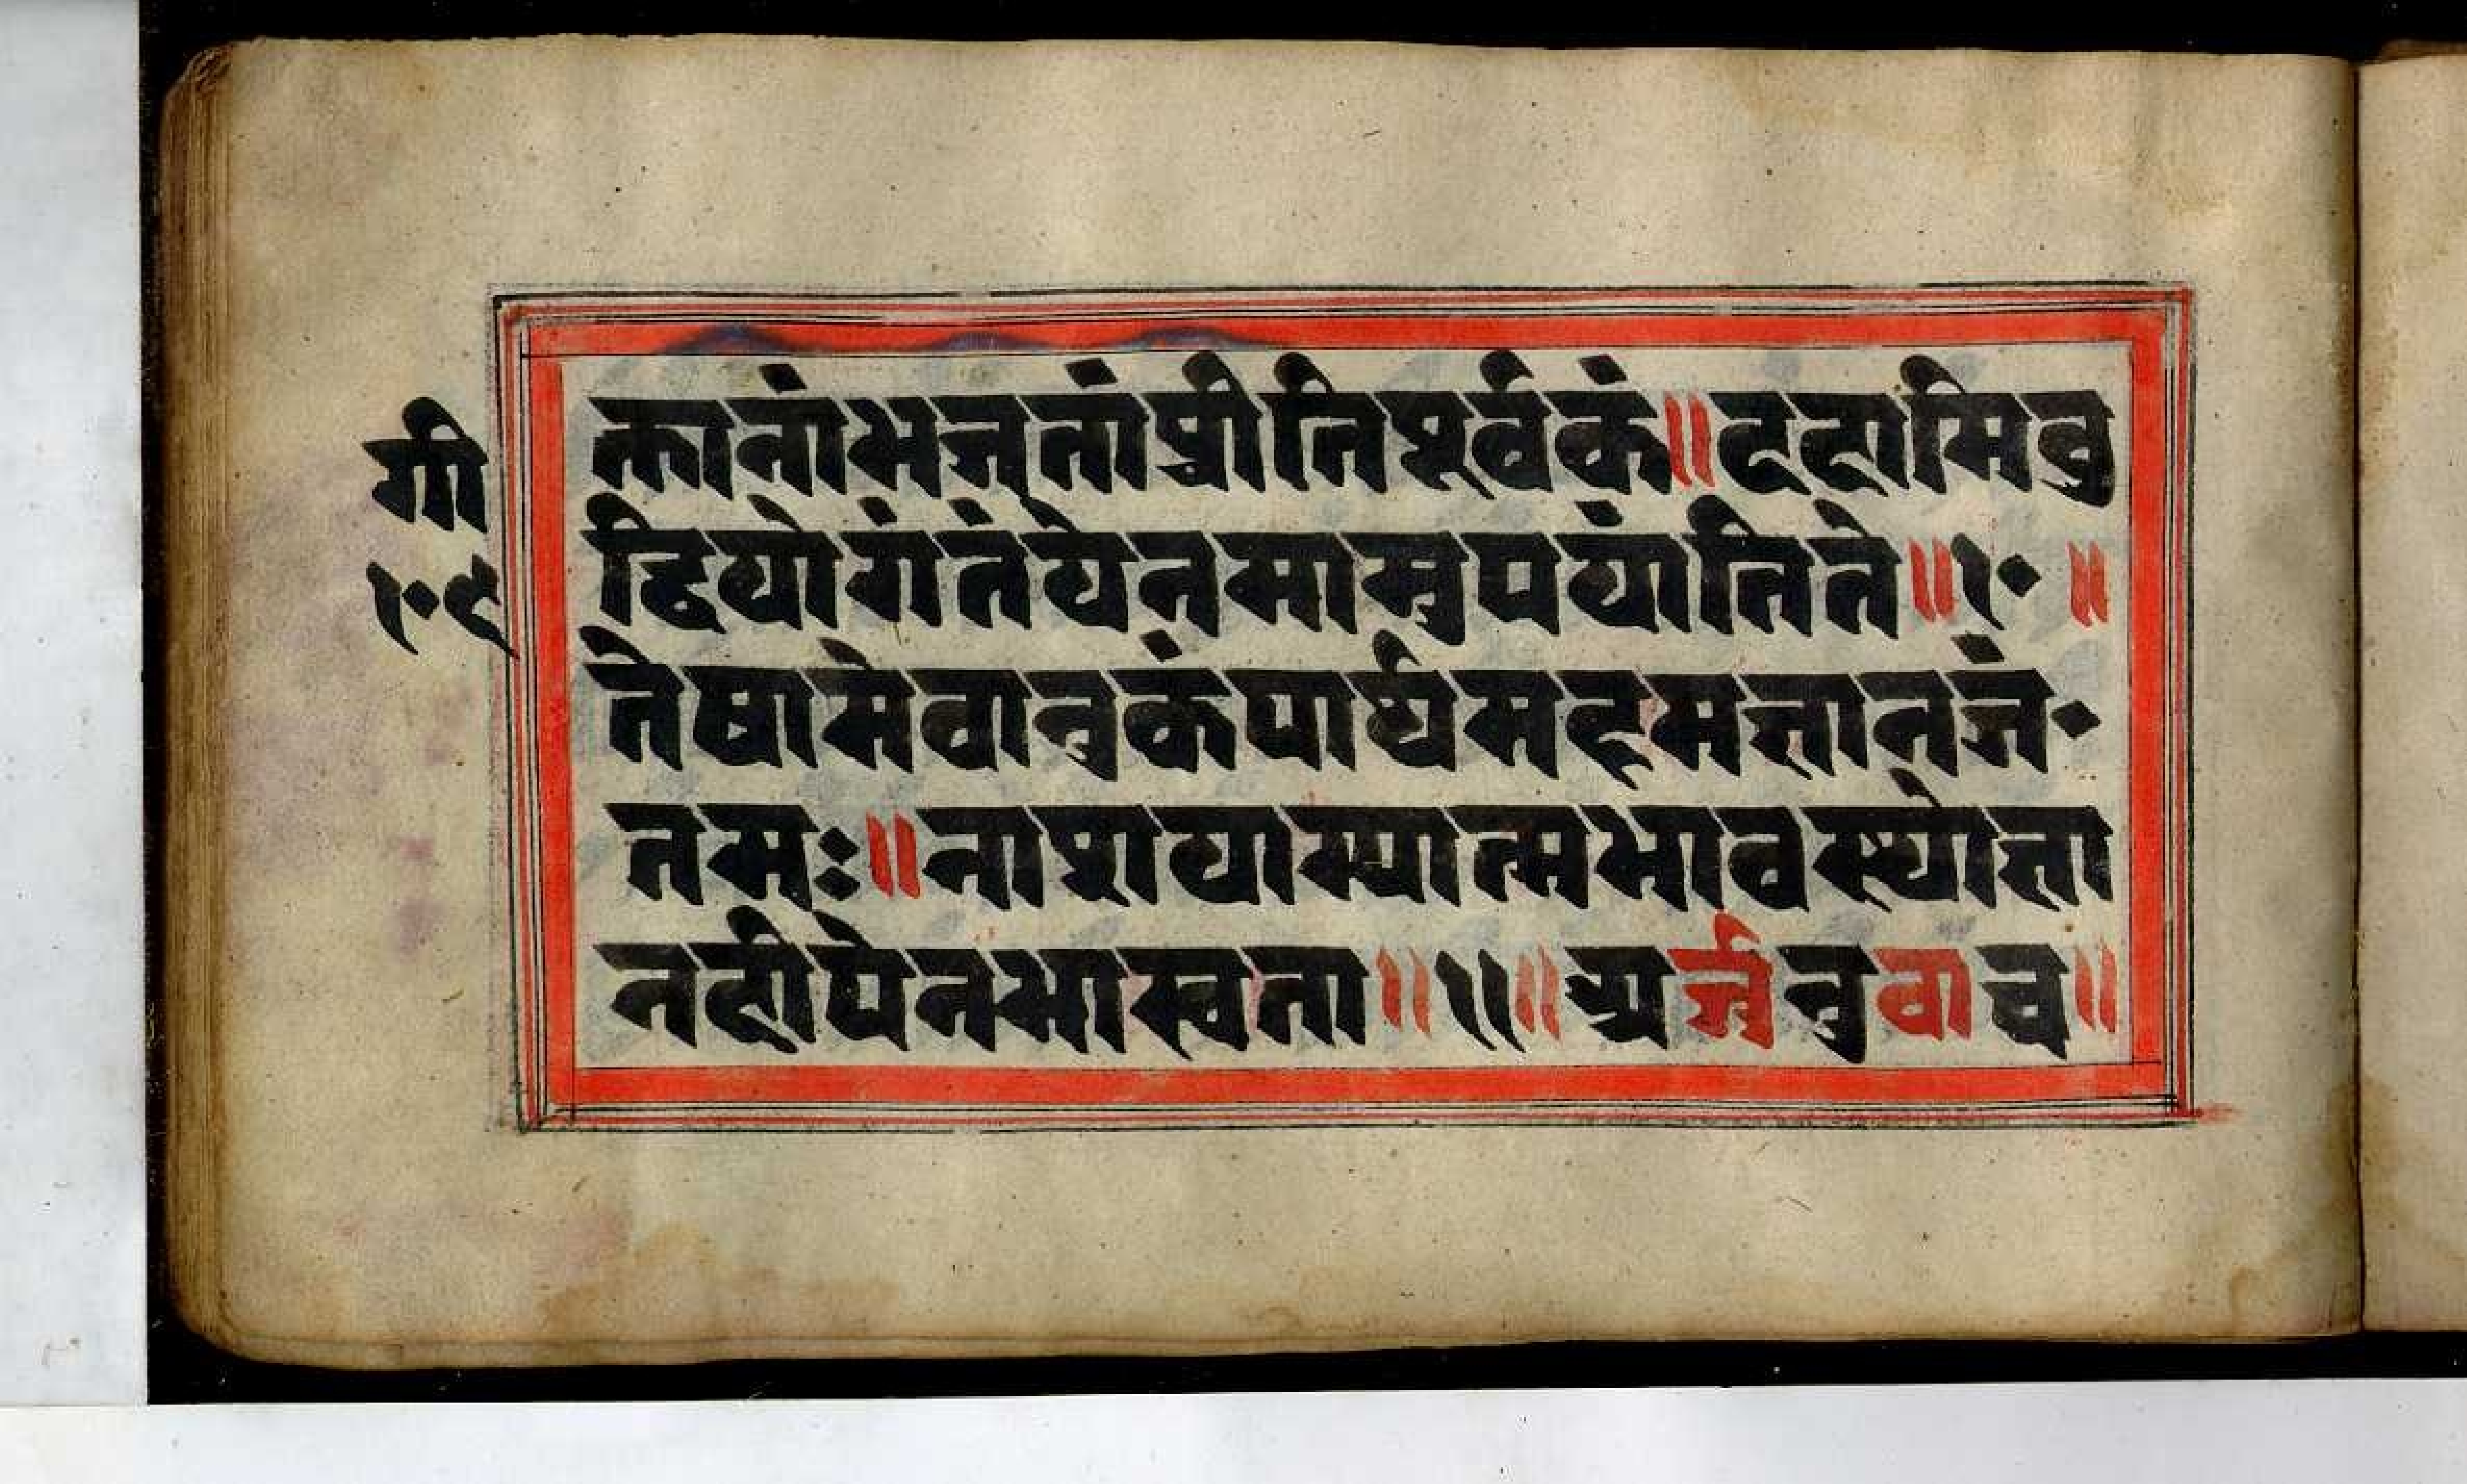 गी
१०९
क्तानांभजतांप्रीतिपूर्वकं॥ददामिबु
द्धियोगंतंयेनमामुपयांतिते॥१०॥
तेषामेवानुकंपार्थमहमज्ञानजं॰
तमः॥नाशयाम्यात्मभावस्थोज्ञा
नदीपेनभास्वता॥११॥अर्जुनुवाच॥